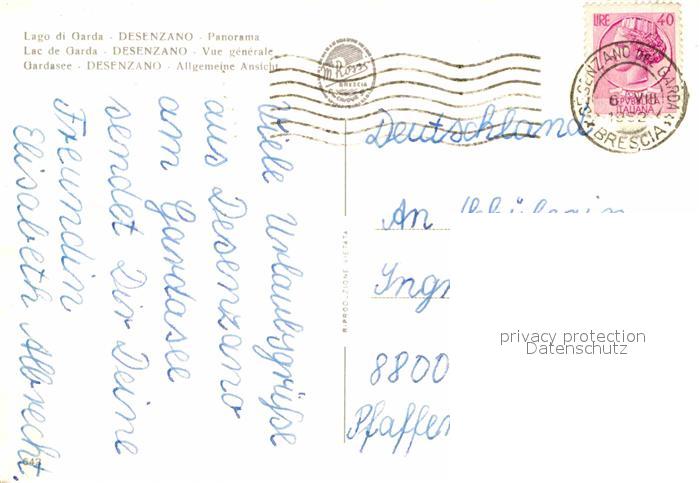 Lago di Garda - DESENZANO - Panorama
Lac de Garda - DESENZANO - Vue générale
Gardasee - DESENZANO - Allgemeine Ansicht
BRESCIA
LIRE 40
ITALIANA
DESENZANO DEL GARDA
BRESCIA
Viele Urlaubsgrüße
aus Desenzano
am Gardasee
sendet Dir Deine
Freundin
Elisabeth Albrecht.
RIPRODUZIONE VIETATA
Deutschland
An Schülerin
Ing
8800
Pfaffen
privacy protection
Datenschutz